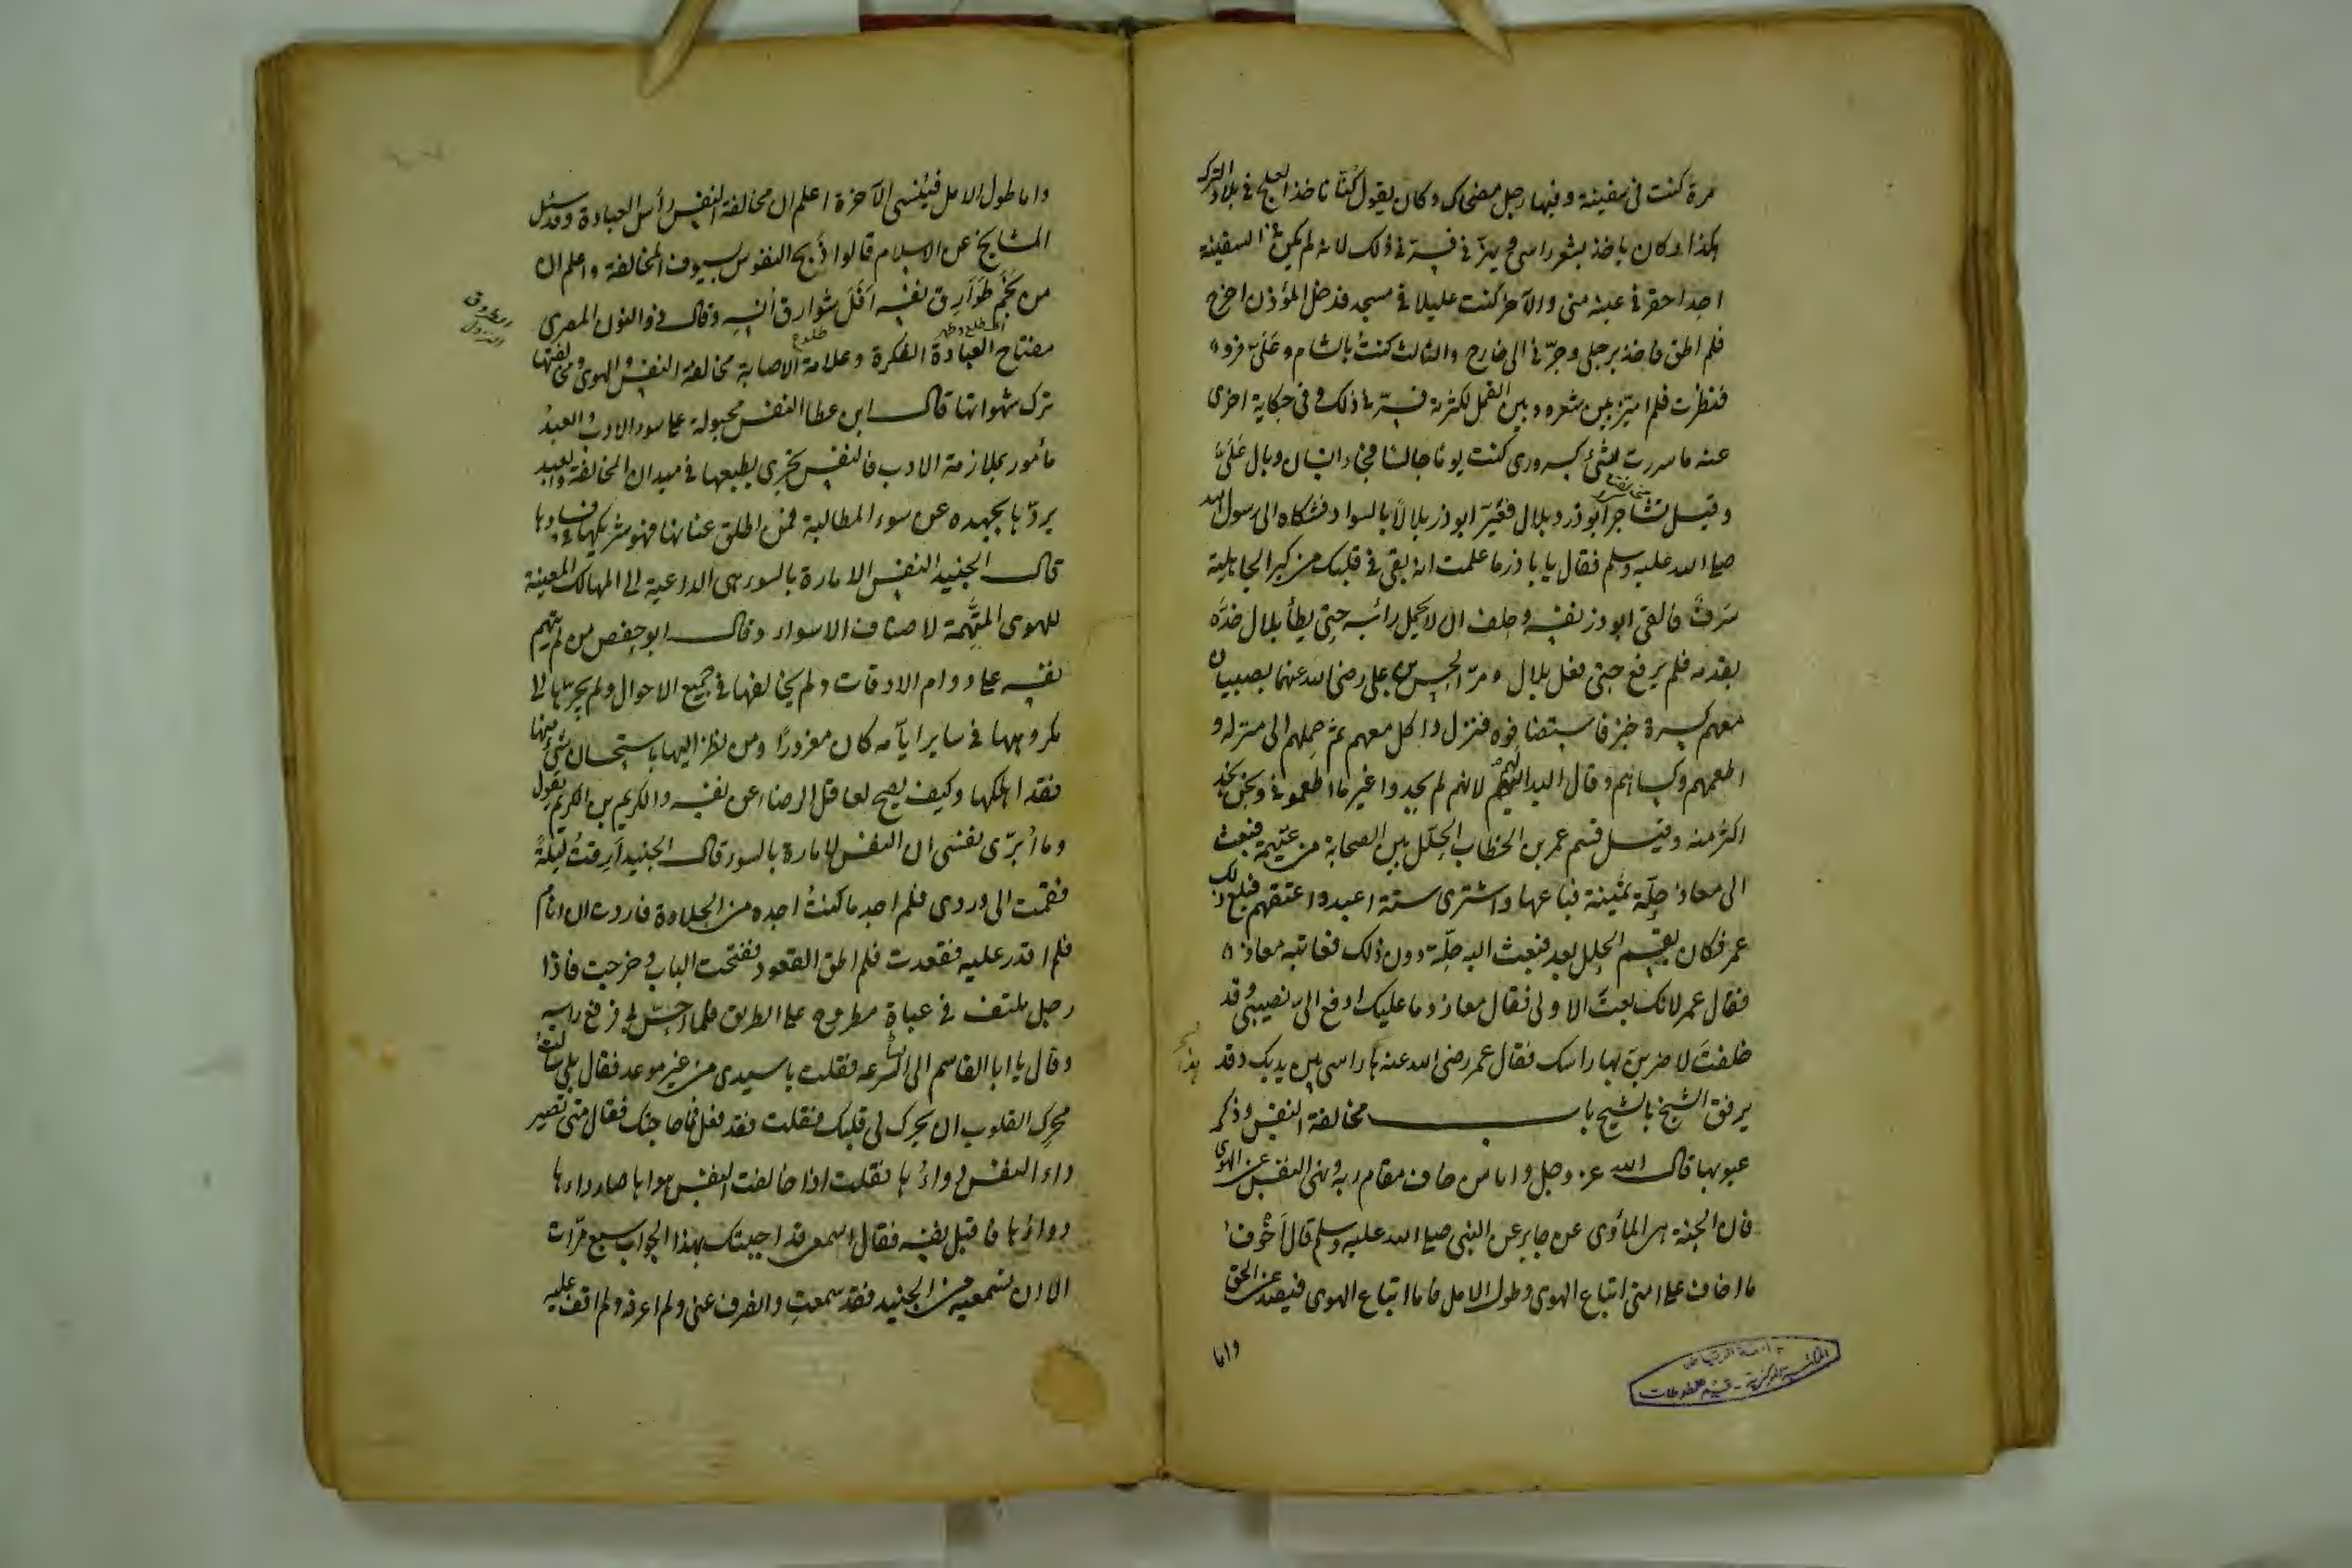 مرة كنت فى سفينة وفيها رجل مضحاك وكان يقول كنا ناخذ العلج فى بلاد الترك
هكذا وكان ياخذ بشعر راسى ويهزنى فسرنى ذلك لانه لم يكن فى السفينة
احدا احقر فى عينه منى والآخر كنت عليلا فى مسجد فدخل المؤذن اخرج
فلم اطق فاخذ برجلى وجرّنى الى خارج والثالث كنت بالشام وعلىّ فروة
فنظرت فلم اميّز بين شعره وبين القمل لكثرته فسرّنى ذلك وفى حكاية اخرى
عنه ما سررت بشئ كسرورى كنت يوما جالسا فجاء انسان وبال علىّ
وقيل تشاجر ابو ذر وبلال فعيّر ابو ذر بلالا بالسواد فشكاه الى رسول الله
صلى الله عليه وسلم فقال يا باذر ما علمت انه بقى فى قلبك من كبر الجاهلية
فالقى ابو ذر نفسه وحلف ان لا يحمل رأسه حتى يطأ بلال خدّه
بقدمه فلم يرفع حتى فعل بلال ومرّ الحسن بن على رضى الله عنهما بصبيان
معهم كسرة خبز فاستضافوه فنزل واكل معهم ثم حملهم الى منزله و
اطعمهم وكساهم وقال اليد لهم لانهم لم يجدوا غير ما اطعمونى ونحن نجد
اكثر منه وقيل قسم عمر بن الخطاب الحلل بين الصحابة من غنيمة فبعث
الى معاذ حلّة ثمينة فباعها واشترى ستة اعبد واعتقهم فبلغ ذلك
عمر فكان يقسم الحلل بعد فبعث اليه حلّة دون ذلك فعاتبه معاذ
فقال عمر لانك بعت الاولى فقال معاذ وما عليك ادفع الىّ نصيبى وقد
حلفت لاضربنّ بها راسك فقال عمر رضى الله عنه ها راسى بين يديك وقد
يرفق الشيخ بالشيخ باب مخالفة النفس وذكر
عيوبها قال الله عز وجل واما من خاف مقام ربه ونهى النفس عن الهوى
فان الجنة هى المأوى عن جابر عن النبى صلى الله عليه وسلم قال أخوف
ما اخاف على امتى اتباع الهوى وطول الامل فاما اتباع الهوى فيصد عن الحق
واما
واما طول الامل فينسى الآخرة اعلم ان مخالفة النفس رأس العبادة وقد سئل
المشايخ عن الاسلام قالوا ذبح النفوس بسيوف المخالفة واعلم ان
من نَجَم طوارق نفسه أفل شوارق أنسه وقال ذو النون المصرى
مفتاح العبادة الفكرة وعلامة الاصابة مخالفة النفس والهوى ومخالفتها
ترك شهواتها قال ابن عطا النفس مجبولة على سوء الادب والعبد
مأمور بملازمة الادب فالنفس تجرى بطبعها فى ميدان المخالفة والعبد
يردّها بجهده عن سوء المطالبة فمن اطلق عنانها فهو شريكها فى فسادها
قال الجنيد النفس الامارة بالسوء هى الداعية الى المهالك المعينة
للهوى المتهمة لاصناف الاسواء وقال ابو حفص من لم يتهم
نفسه على دوام الاوقات ولم يخالفها فى جميع الاحوال ولم يجرّها الى
مكروهها فى ساير ايامه كان مغرورًا ومن نظر اليها باستحسان شئ منها
فقد اهلكها وكيف يصح لعاقل الرضاء عن نفسه والكريم بن الكريم يقول
وما أبرّى نفسى ان النفس لامارة بالسوء قال الجنيد أرقت ليلة
فقمت الى وردى فلم اجد ما كنت اجده من الحلاوة فاردت ان انام
فلم اقدر عليه فقعدت فلم اطق القعود ففتحت الباب وخرجت فاذا
رجل ملتف فى عباة مطروح على الطريق فلما احسّ بى رفع راسه
وقال يا ابا القاسم الى الساعة فقلت يا سيدى من غير موعد فقال بلى سألت
محرّك القلوب ان يحرك لى قلبك فقلت فقد فعل فما حاجتك فقال متى تصير
داء النفس دواءُها فقلت اذا خالفت النفس هواها صار داءها
دواؤها فاقبل نفسه فقال اسمعى قد اجبتك بهذا الجواب سبع مرّات
الا ان تسمعيه من الجنيد فقد سمعتِ وانصرف عنى ولم اعرفه ولم اقف عليه
المكتبة المركزية - قسم المخطوطات